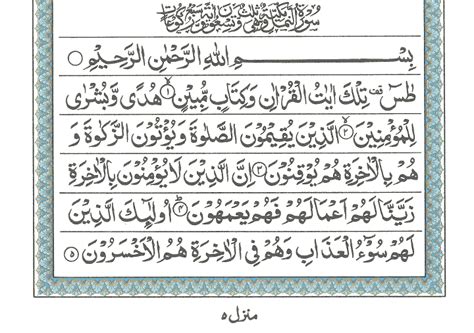 سُوْرَةُ النَّمْلِ مَكِّيَّةٌ وَّهِيَ ثَلٰثٌ وَّتِسْعُوْنَ اٰيَةً وَّسَبْعُ رُكُوْعَاتٍ
بِسْمِ اللّٰهِ الرَّحْمٰنِ الرَّحِيْمِ ۝
طٰسٓ قف تِلْكَ اٰيٰتُ الْقُرْاٰنِ وَكِتَابٍ مُّبِيْنٍ ۝۱ هُدًى وَّبُشْرٰى
لِلْمُؤْمِنِيْنَ ۝۲ الَّذِيْنَ يُقِيْمُوْنَ الصَّلٰوةَ وَيُؤْتُوْنَ الزَّكٰوةَ وَ
هُمْ بِالْاٰخِرَةِ هُمْ يُوْقِنُوْنَ ۝۳ اِنَّ الَّذِيْنَ لَا يُؤْمِنُوْنَ بِالْاٰخِرَةِ
زَيَّنَّا لَهُمْ اَعْمَالَهُمْ فَهُمْ يَعْمَهُوْنَ ۝۴ اُولٰٓئِكَ الَّذِيْنَ
لَهُمْ سُوْٓءُ الْعَذَابِ وَهُمْ فِي الْاٰخِرَةِ هُمُ الْاَخْسَرُوْنَ ۝۵
منزل ۵